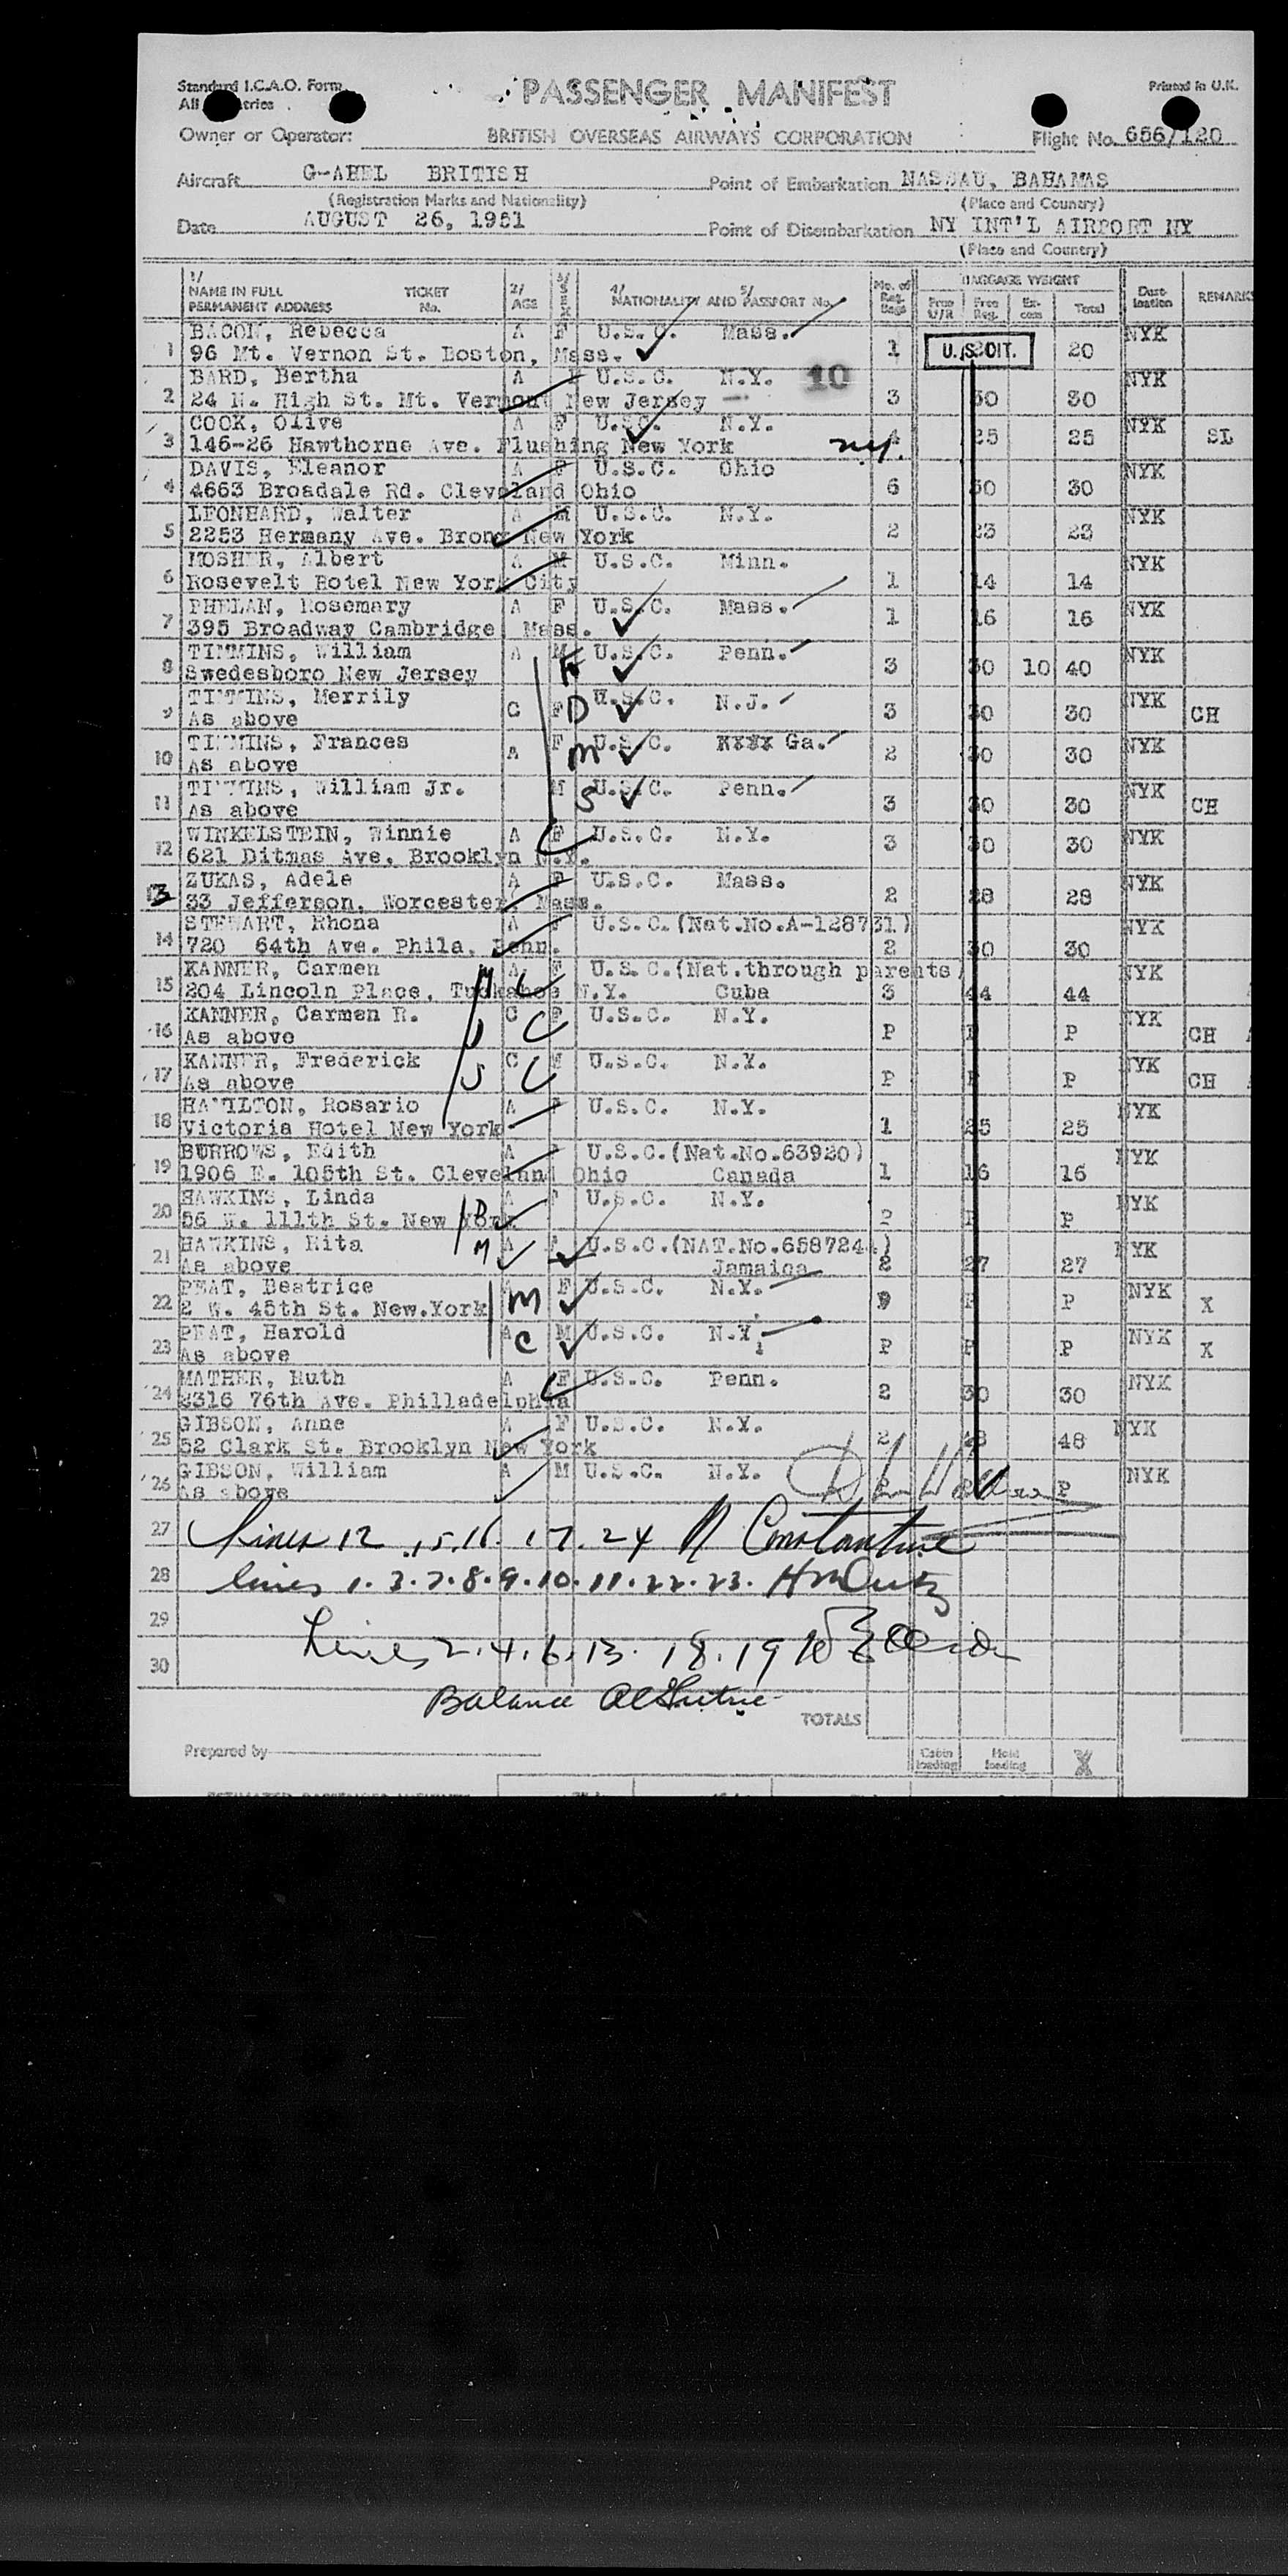 Standard I.C.A.O. Form
PASSENGER MANIFEST
Printed in U.K.
All
Owner or Operator: BRITISH OVERSEAS AIRWAYS CORPORATION Flight No. 656/120
Aircraft BRITISH Point of Embarkation NASSAU, BAHAMAS
(Registration Marks and Nationality) (Place and Country)
Date AUGUST 26, 1951 Point of Disembarkation NY INT'L AIRPORT NY
(Place and Country)
1/ NAME IN FULL TICKET 2/ 3/ SEX 4/ 5/ No. of BAGGAGE WEIGHT Dest- REMARKS
PERMANENT ADDRESS No. AGE NATIONALITY AND PASSPORT No. Reg. Bags Free U/R Free Reg. Ex-cess Total ination
BACON, Rebecca A F U.S.C. Mass. NYK
1 96 Mt. Vernon St. Boston, Mass. 1 20
BARD, Bertha A U.S.C. N.Y. 10 NYK
2 24 N. High St. Mt. Vernon New Jersey 3 30 30
COOK, Olive A F U.S.C. N.Y. NYK
3 146-26 Hawthorne Ave. Flushing New York N.Y. 4 25 25 SL
DAVIS, Eleanor A F U.S.C. Ohio NYK
4 4663 Broadale Rd. Cleveland Ohio 6 30 30
LEONHARD, Walter A M U.S.C. N.Y. NYK
5 2253 Hermany Ave. Bronx New York 2 23 23
MOSHER, Albert A M U.S.C. Minn. NYK
6 Rosevelt Hotel New York City 1 14 14
PHELAN, Rosemary A F U.S.C. Mass. NYK
7 395 Broadway Cambridge Mass. 1 16 16
TIMMINS, William A M U.S.C. Penn. NYK
8 Swedesboro New Jersey 3 30 10 40
TIMMINS, Merrily C F D U.S.C. N.J. NYK
9 As above 3 30 30 CH
TIMMINS, Frances A F M U.S.C. XXXX Ga. NYK
10 As above 2 30 30
TIMMINS, William Jr. M S U.S.C. Penn. NYK
11 As above 3 30 30 CH
WINKELSTEIN, Winnie A F U.S.C. N.Y. NYK
12 621 Ditmas Ave. Brooklyn N.Y. 3 30 30
ZUKAS, Adele A F U.S.C. Mass. NYK
13 33 Jefferson, Worcester, Mass. 2 28 28
STEWART, Rhona A F U.S.C.(Nat.No.A-128731) NYK
14 720 64th Ave. Phila, Penn. 2 30 30
KANNER, Carmen M A F U.S.C.(Nat.through parents) NYK
15 204 Lincoln Place, Tuckahoe N.Y. Cuba 3 44 44
KANNER, Carmen R. C F U.S.C. N.Y. NYK
16 As above P P P CH
KANNER, Frederick C M U.S.C. N.Y. NYK
17 As above P P P CH
HAMILTON, Rosario A F U.S.C. N.Y. NYK
18 Victoria Hotel New York 1 25 25
BURROWS, Edith A U.S.C.(Nat.No.63920) NYK
19 1906 E. 105th St. Cleveland Ohio Canada 1 16 16
HAWKINS, Linda A F U.S.C. N.Y. NYK
20 56 W. 111th St. New York P P P
HAWKINS, Rita M A U.S.C.(NAT.No.6587244) NYK
21 As above Jamaica 2 27 27
PEAT, Beatrice A M F U.S.C. N.Y. NYK
22 2 W. 45th St. New.York P P X
PEAT, Harold A C M U.S.C. N.Y. NYK
23 As above P P P X
MATHER, Ruth A F U.S.C. Penn. NYK
24 2316 76th Ave. Philladelphia 2 30 30
GIBSON, Anne A F U.S.C. N.Y. NYK
25 52 Clark St. Brooklyn New York 2 48 48
GIBSON, William A M U.S.C. N.Y. NYK
26 As above P P
27 Lines 12 . 15.16. 17. 24 N Constantine
28 lines 1. 3. 7. 8. 9. 10. 11. 22. 23.
29
Lines 2. 4. 6. 13. 18. 19
30
Balance
TOTALS
Prepared by
Cabin loading Hold loading